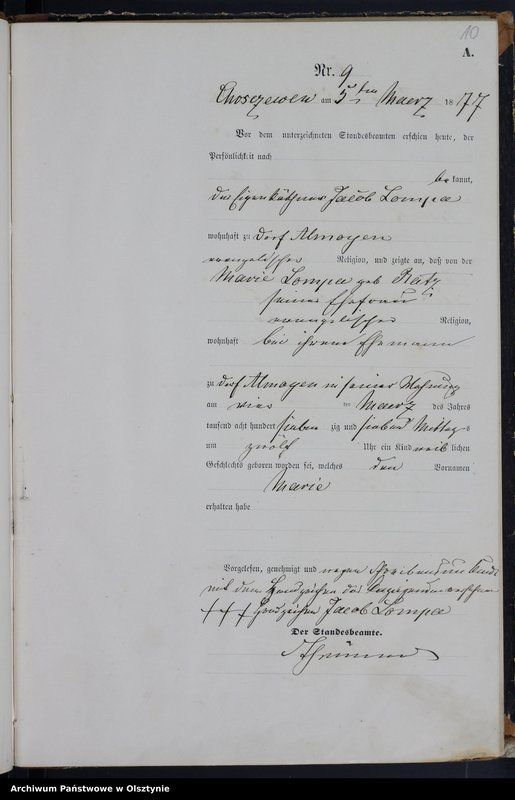 10
A.
Nr. 9
Choszewen am 5ten Maerz 1877
Vor dem unterzeichneten Standesbeamten erschien heute, der
Persönlichkeit nach
bekannt,
der Eigenkäthner Jacob Lompa
wohnhaft zu Dorf Almoyen
evangelischer Religion, und zeigte an, daß von der
Marie Lompa geb Ratz
seiner Ehefrau
evangelischer Religion,
wohnhaft bei ihrem Ehemann
zu Dorf Almoyen in seiner Wohnung
am vier ten Maerz des Jahres
tausend acht hundert sieben zig und sieben Mittags
um zwölf Uhr ein Kind weib lichen
Geschlechts geboren worden sei, welches den Vornamen
Marie
erhalten habe
Vorgelesen, genehmigt und wegen Schreibensunkunde
mit dem Handzeichen des Anzeigenden versehen
+++ Handzeichen Jacob Lompa
Der Standesbeamte.
Archiwum Państwowe w Olsztynie